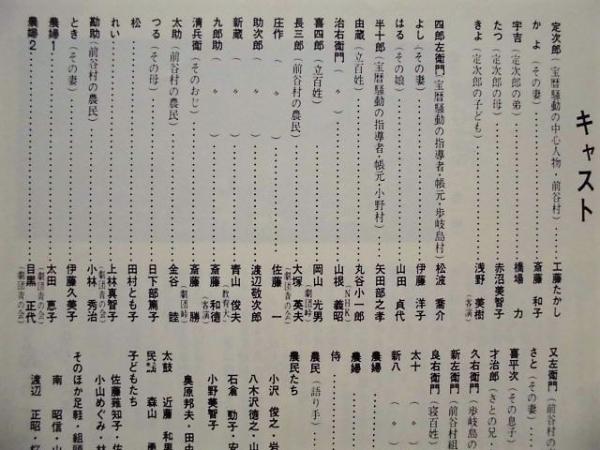 キャスト
定次郎(宝暦騒動の中心人物・前谷村)……工藤たかし
かよ(その妻)……斎藤 和子
宇吉(定次郎の弟)……橋場 力
たつ(定次郎の母)……赤沼美智子
きよ(定次郎の子ども)……浅野 美樹(客演)
四郎左衛門(宝暦騒動の指導者・帳元・歩岐島村)松波 喬介
よし(その妻)……伊藤 洋子
はる(その娘)……山田 貞代
半十郎(宝暦騒動の指導者・帳元・小野村)……矢田部之孝
由蔵(立百姓)……丸谷小一郎
治右衛門(〃)……山根 義昭(NHK)
喜四郎(立百姓)……岡山 光男(劇団峠)
長三郎(前谷村の農民)……大塚 英夫(劇団青の会)
庄作(〃)……佐藤 一
助次郎(〃)……渡辺敬次郎
新蔵(〃)……青山 俊夫(教育大)
九郎助(〃)……斎藤 和徳(客演)
清兵衛(そのおじ)……斎藤 勝
太助(前谷村の農民)……金谷 睦(劇団峠)
つる(その母)……日下部篤子
松……田村とも子
れい……上林真智子(劇団青の会)
勘助(前谷村の農民)……小林 秀治
とき(その妻)……伊藤久美子
農婦1……太田 恵子(劇団青の会)
農婦2……目黒 正代(劇団青の会)
又左衛門(前谷村の
さと(その妻)
喜平次(その息子)
才治郎(さとの兄・
久右衛門(歩岐島の
新左衛門(前谷村組
良右衛門(寝百姓
太十(〃)
新八(〃
農婦
農婦
侍
農民(語り手)
農民たち
小沢 俊之・岩
八木沢徳之・山
石倉 勁子・安
小野美智子
奥原邦夫・田中
太鼓 近藤 和男
民謡 森山 勇
子どもたち
佐藤薙知子・佐
小山めぐみ・林
そのほか足軽・組頭
南 昭信・山
渡辺 正昭・